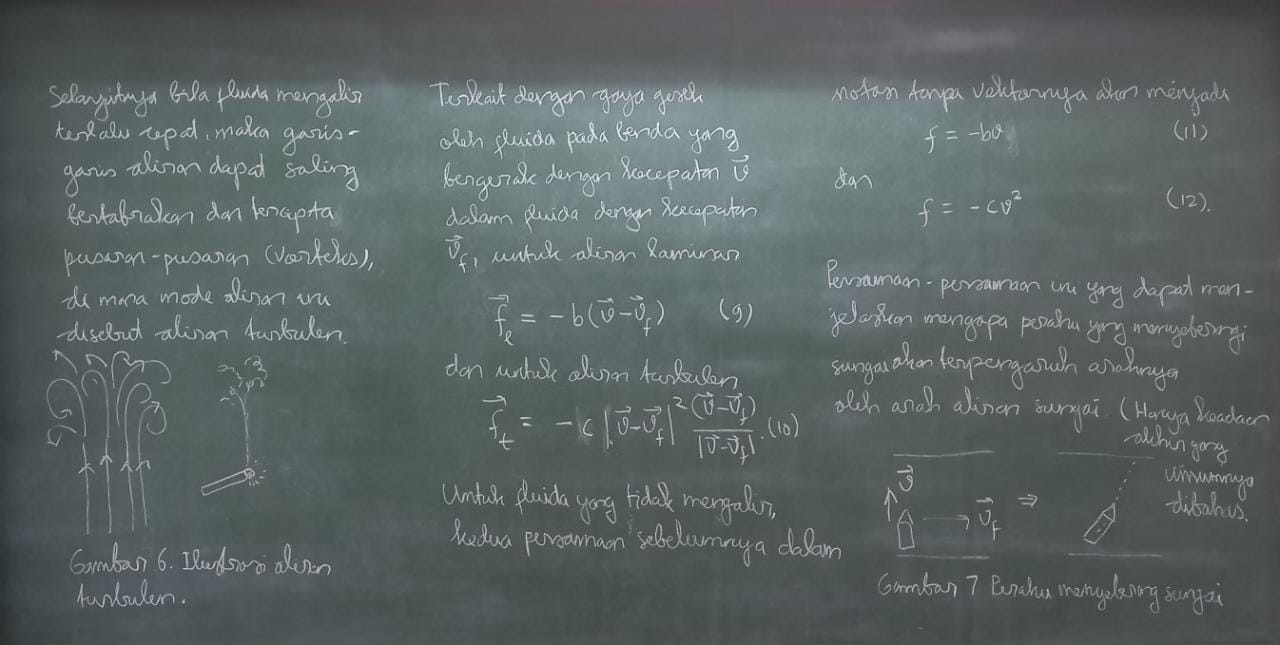 Selanjutnya bila fluida mengalir
terlalu cepat, maka garis-
garis aliran dapat saling
bertabrakan dan tercipta
pusaran-pusaran (vorteks),
di mana mode aliran ini
disebut aliran turbulen.
Gambar 6. Ilustrasi aliran
turbulen.
Terkait dengan gaya gesek
oleh fluida pada benda yang
bergerak dengan kecepatan v⃗
dalam fluida dengan kecepatan
v⃗_f, untuk aliran laminar
f⃗_l = -b(v⃗-v⃗_f) (9)
dan untuk aliran turbulen
f⃗_t = -c|v⃗-v⃗_f|² (v⃗-v⃗_f)/|v⃗-v⃗_f|. (10)
Untuk fluida yang tidak mengalir,
kedua persamaan sebelumnya dalam
notasi tanpa vektornya akan menjadi
f = -bv (11)
dan
f = -cv² (12).
Persamaan-persamaan ini yang dapat men-
jelaskan mengapa perahu yang menyeberangi
sungai akan terpengaruh arahnya
oleh arah aliran sungai. (Hanya keadaan
akhir yang
umumnya
dibahas.
v⃗
v⃗_f ⇒
Gambar 7 Perahu menyebrang sungai